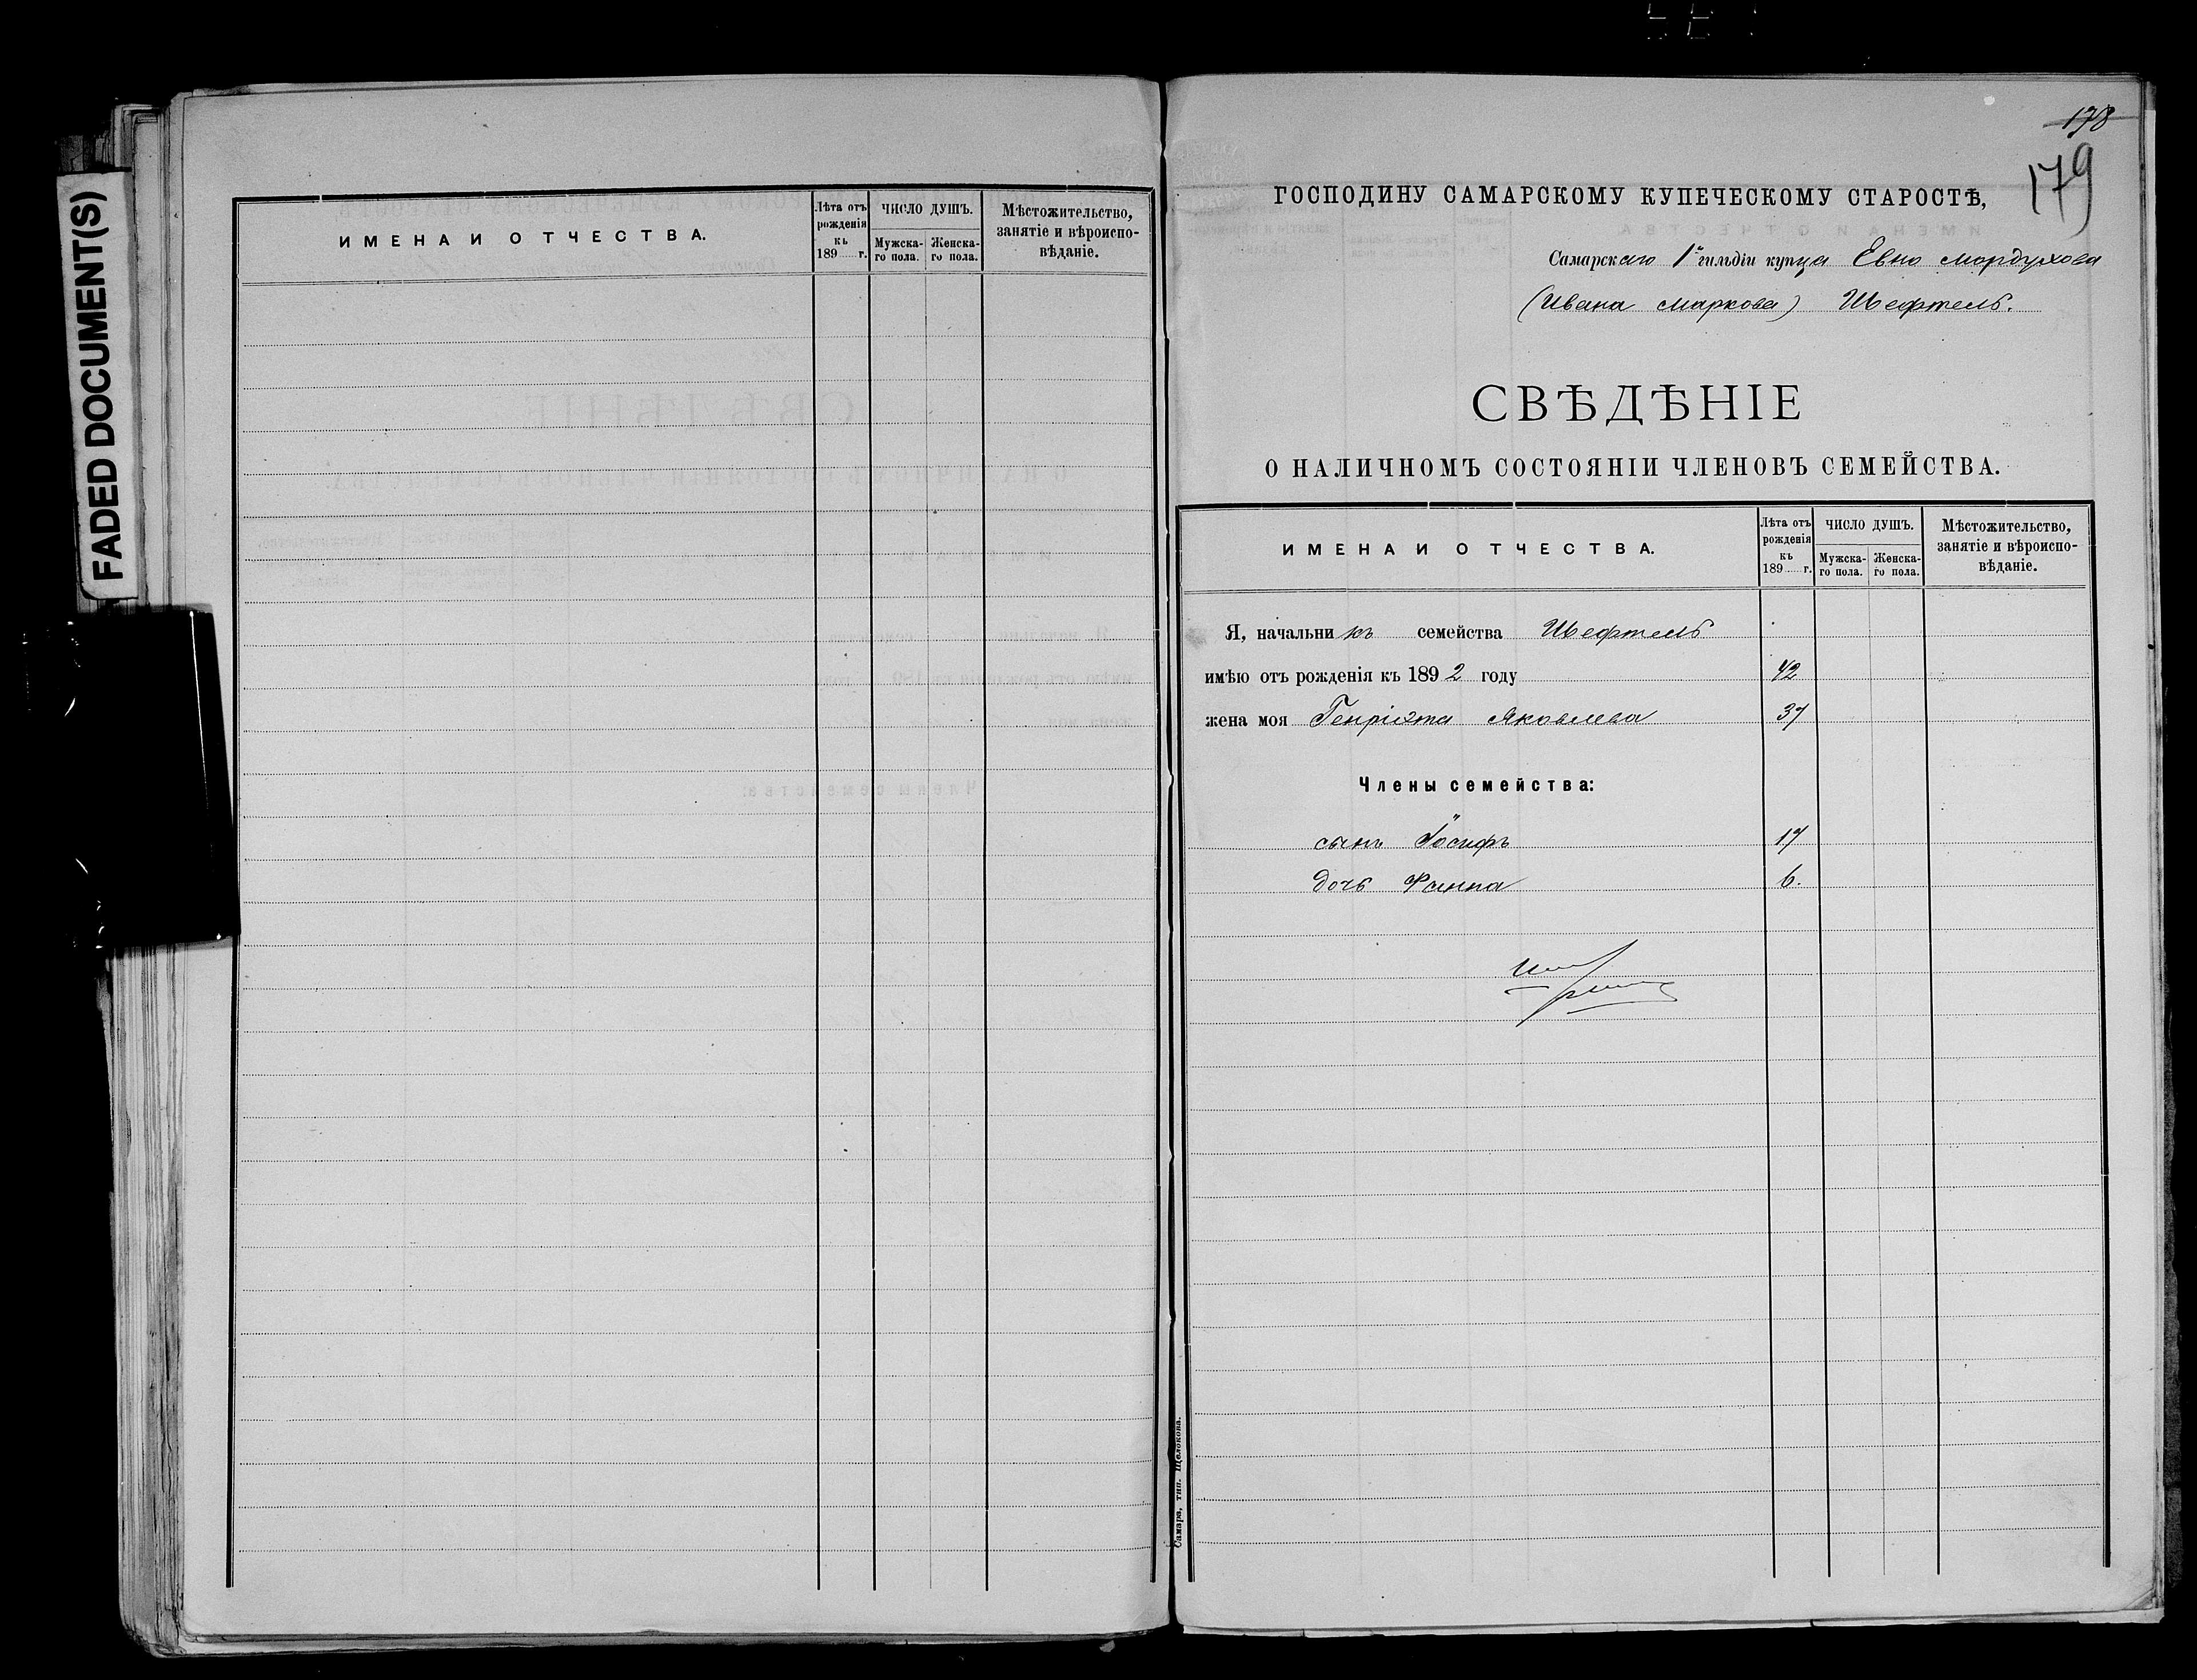 FADED DOCUMENT(S)
ИМЕНА И ОТЧЕСТВА.
Лѣта отъ рожденія къ 189 г.
ЧИСЛО ДУШЪ.
Мужска-
го пола.
Женска-
го пола.
Мѣстожительство,
занятіе и вѣроиспо-
вѣданіе.
178
179
ГОСПОДИНУ САМАРСКОМУ КУПЕЧЕСКОМУ СТАРОСТѢ,
Самарскаго 1й гильдіи купца Евно Мордухова
(Ивана Маркова) Шефтель.
СВѢДѢНІЕ
О НАЛИЧНОМЪ СОСТОЯНІИ ЧЛЕНОВЪ СЕМЕЙСТВА.
ИМЕНА И ОТЧЕСТВА.
Лѣта отъ
рожденія
къ
189 г.
ЧИСЛО ДУШЪ.
Мужска-
го пола.
Женска-
го пола.
Мѣстожительство,
занятіе и вѣроиспо-
вѣданіе.
Я, начальникъ семейства Шефтель
имѣю отъ рожденія къ 1892 году 42
жена моя Генріэта Яковлева 37
Члены семейства:
сынъ Іосифъ 17
дочь Фанна 6.
Самара, тип. Щелокова.